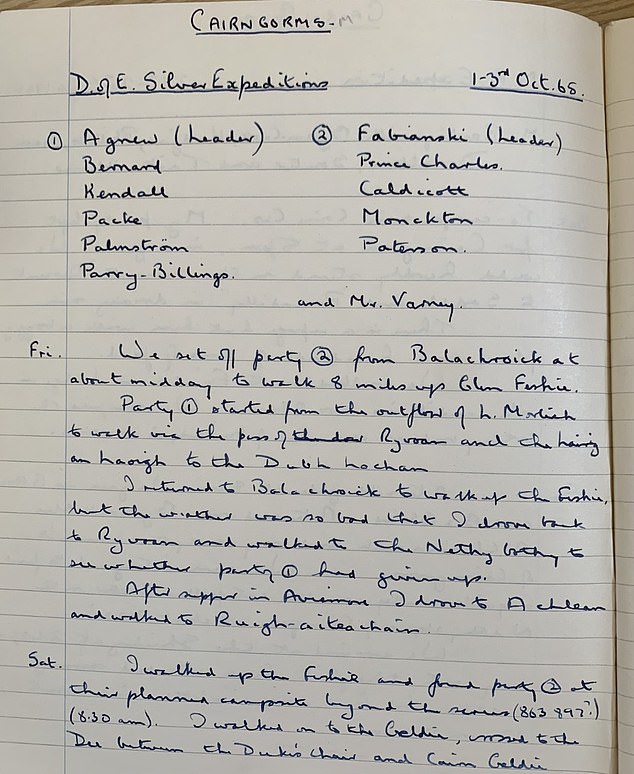 CAIRNGORMS-M
D. of E. Silver Expeditions 1-3rd Oct. 65.
① Agnew (Leader) ② Fabianski (Leader)
Bernard Prince Charles.
Kendall Caldicott
Packe Monckton
Palmström Paterson.
Parry-Billings.
and Mr. Varney.
Fri. We set off party ② from Balachroick at
about midday to walk 8 miles up Glen Feshie.
Party ① started from the outflow of L. Morlich
to walk via the pass of Ryvoan and the Lairig
an Laoigh to the Dubh Lochan
I returned to Balachroick to walk up the Feshie,
but the weather was so bad that I drove back
to Ryvoan and walked to the Nethy bothy to
see whether party ① had given up.
After supper in Aviemore I drove to Achlean
and walked to Ruigh-aiteachain.
Sat. I walked up the Feshie and found party ② at
their planned campsite beyond the screes (863 897?)
(8.30 am). I walked on to the Geldie, crossed to the
Dee between the Duke's Chair and Cairn Geldie